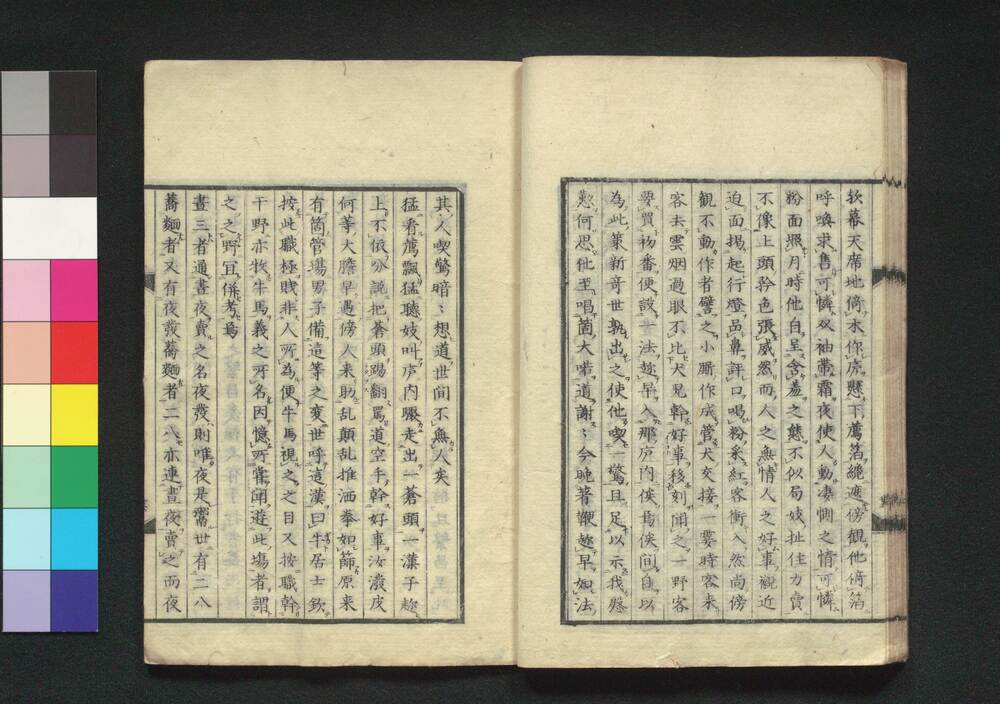 軟幕天席地倚水作床懸下薦箔纔遮傍觀他倚箔
呼喚求售可憐双袖帶霜夜使人動凄惆之情可憐
粉面照月時他自呈含羞之態不似局妓扯住力賣
不像上頭斡色張威然而人之無情人之好事觀近
迫面揭起行燈品鼻評口喝粉采紅客衝入然尚傍
観不動作者譬之小厮作成管犬交接一霎時客来
客去雲烟過眼不比犬見幹好事移刻聞之一野客
要買初番便設一法趂早入那庐内俟焉俟間自以
為此策新奇世孰出之使他喫一驚且足以示我慇
懃何思他至唱箇大喏道謝〻今晩著鞭趂早如法
其人喫驚暗〻想道世間不無人矣
猛看薦飄猛聽妓叫庐内曝走出一蒼頭一漢子趂
上不依分説把蒼頭踢翻罵道空手幹好事汝潑皮
何等大膽早遇傍人来助乱顛乱推洒拳如篩原来
有箇管塲男子備這等之変世呼這漢曰牛居士欽
按此職極賎非人所為便牛馬視之之目又按職幹
干野亦牧牛馬義之所名因憶所嘗聞遊此塲者謂
之之野冝併考焉
晝三者通晝夜賣之名夜發則唯夜是鬻世有二八
蕎麵者又有夜發蕎麵者二八亦連晝夜賣之而夜